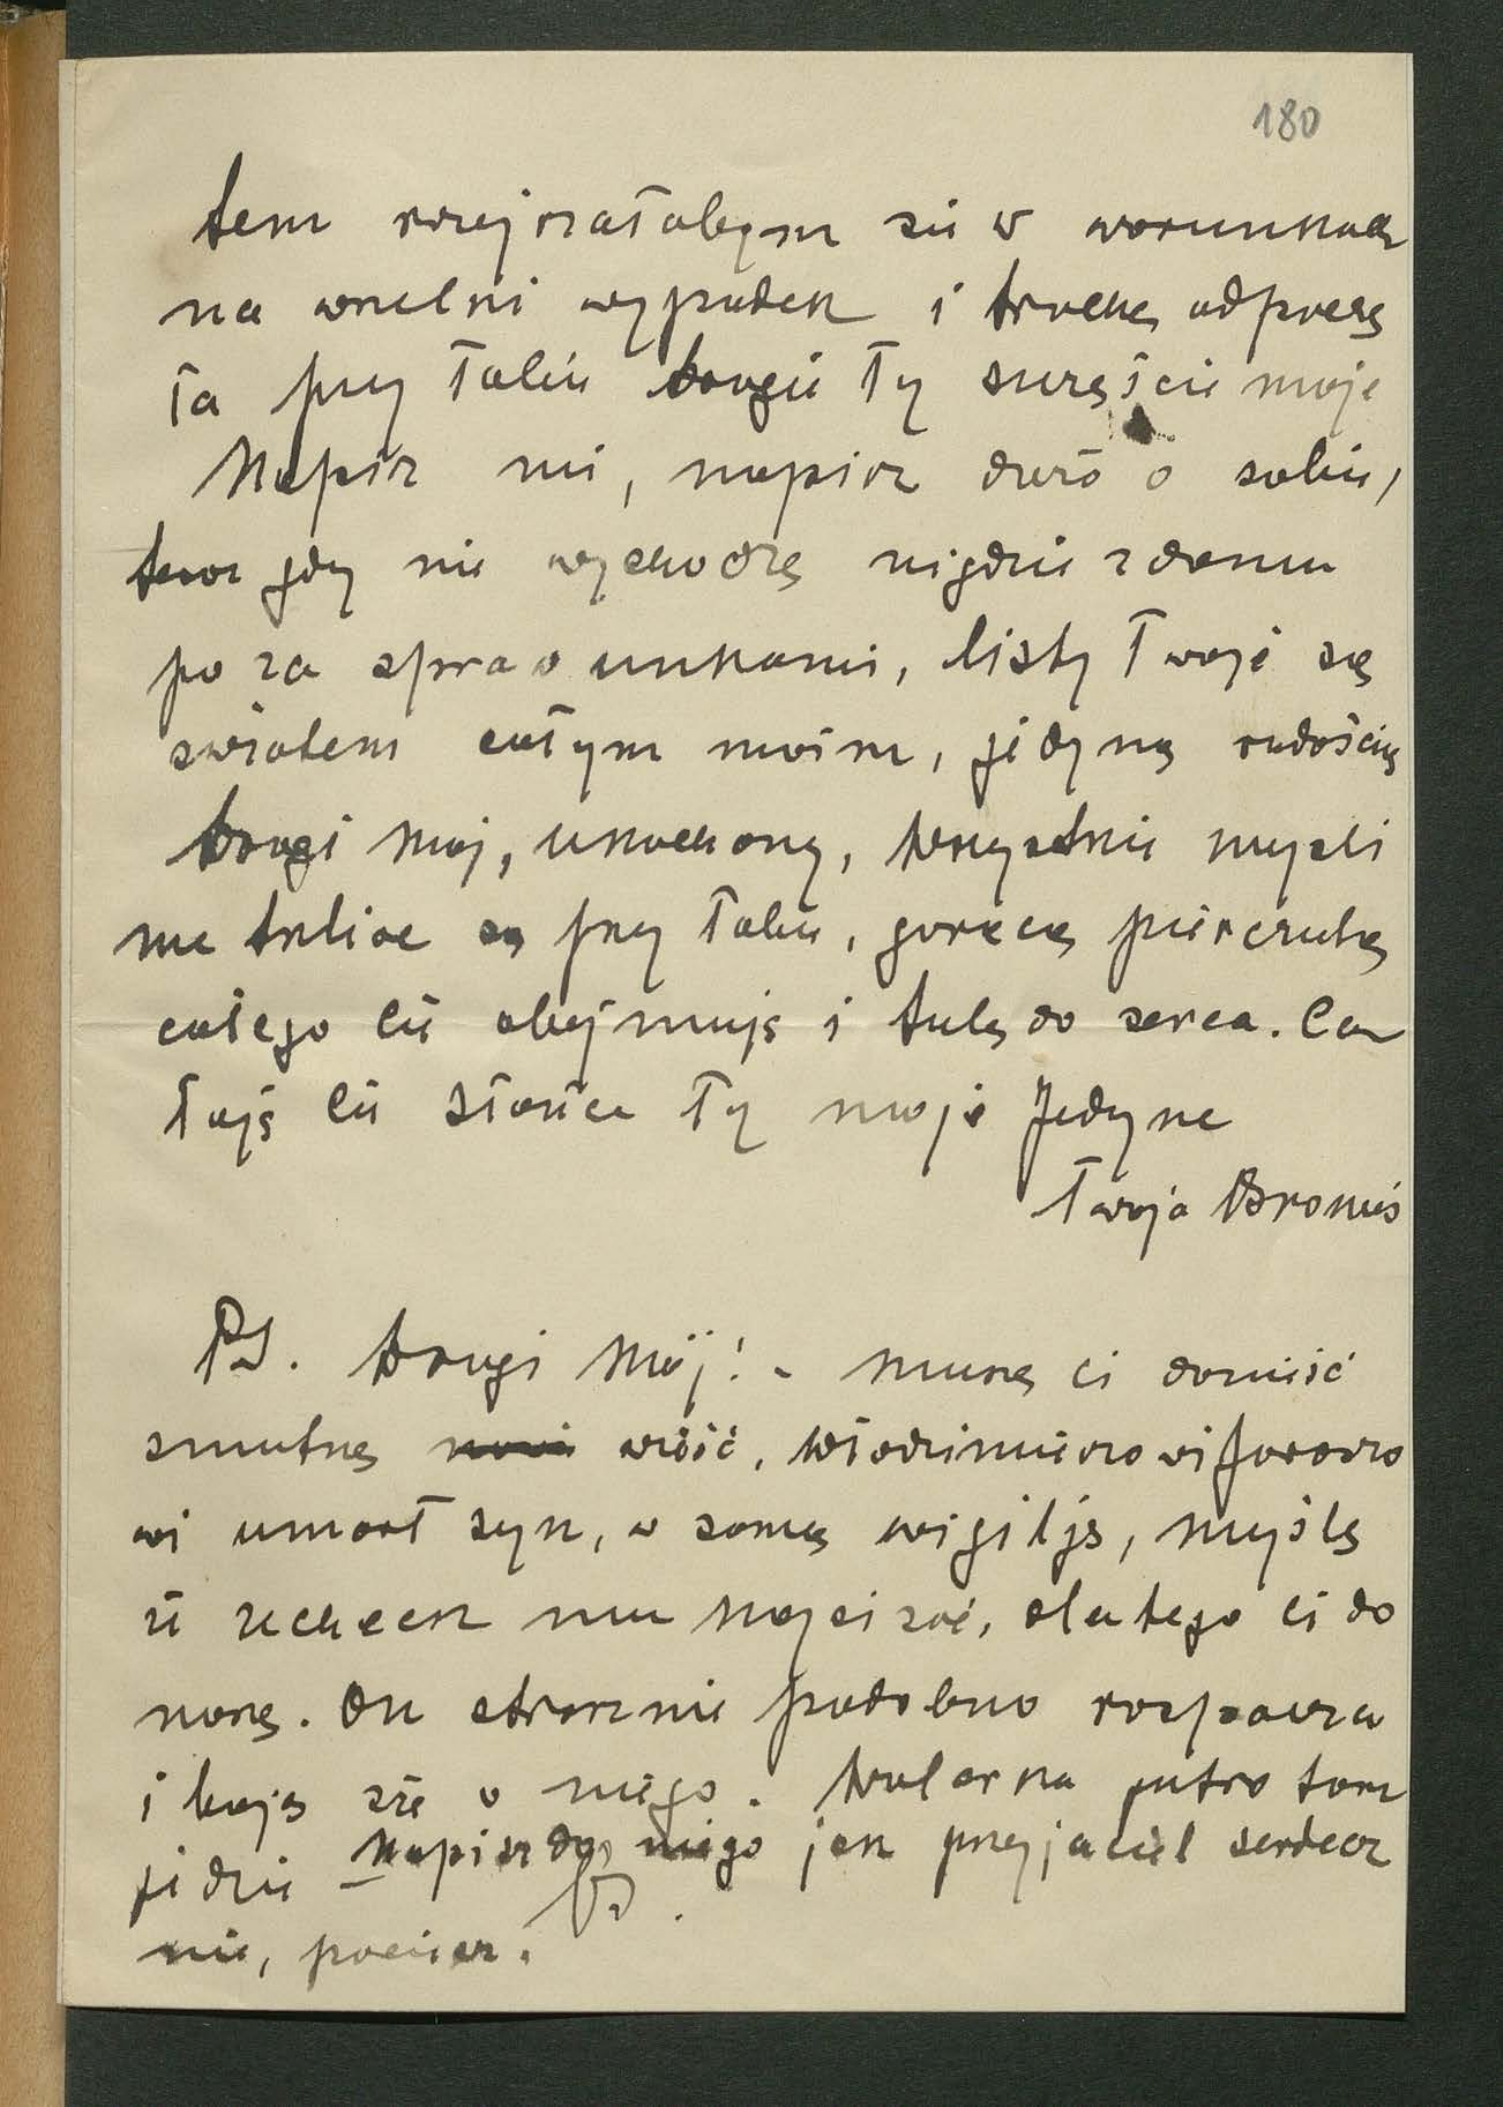 180
tem rozejrzałabym się w warunkach
na wszelki wypadek i trochę odpoczę
ła przy Tobie drogie Ty szczęście moje
Napisz mi, napisz dużo o sobie,
teraz gdy nie wychodzę nigdzie z domu
po za sprawunkami, listy Twoje są
światem całym moim, jedyną radością
Drogi mój, ukochany, wszystkie myśli
me tkliwe są przy Tobie, gorącą pieszczotą
całego Cię obejmuję i tulę do serca. Ca
łuję Cię słońce Ty moje Jedyne
Twoja Broniś
PS. Drogi Mój! - muszę ci donieść
smutną wieść, Włodzimierzowi Jaroszo
wi umarł syn, w samą wigilję, myślę
że zechcesz mu napisać, dlatego ci do
noszę. On strasznie podobno rozpacza
i boję się o niego. jutro tam
jedzie - Napisz do niego jak przyjaciel serdecz
nie, pociesz.